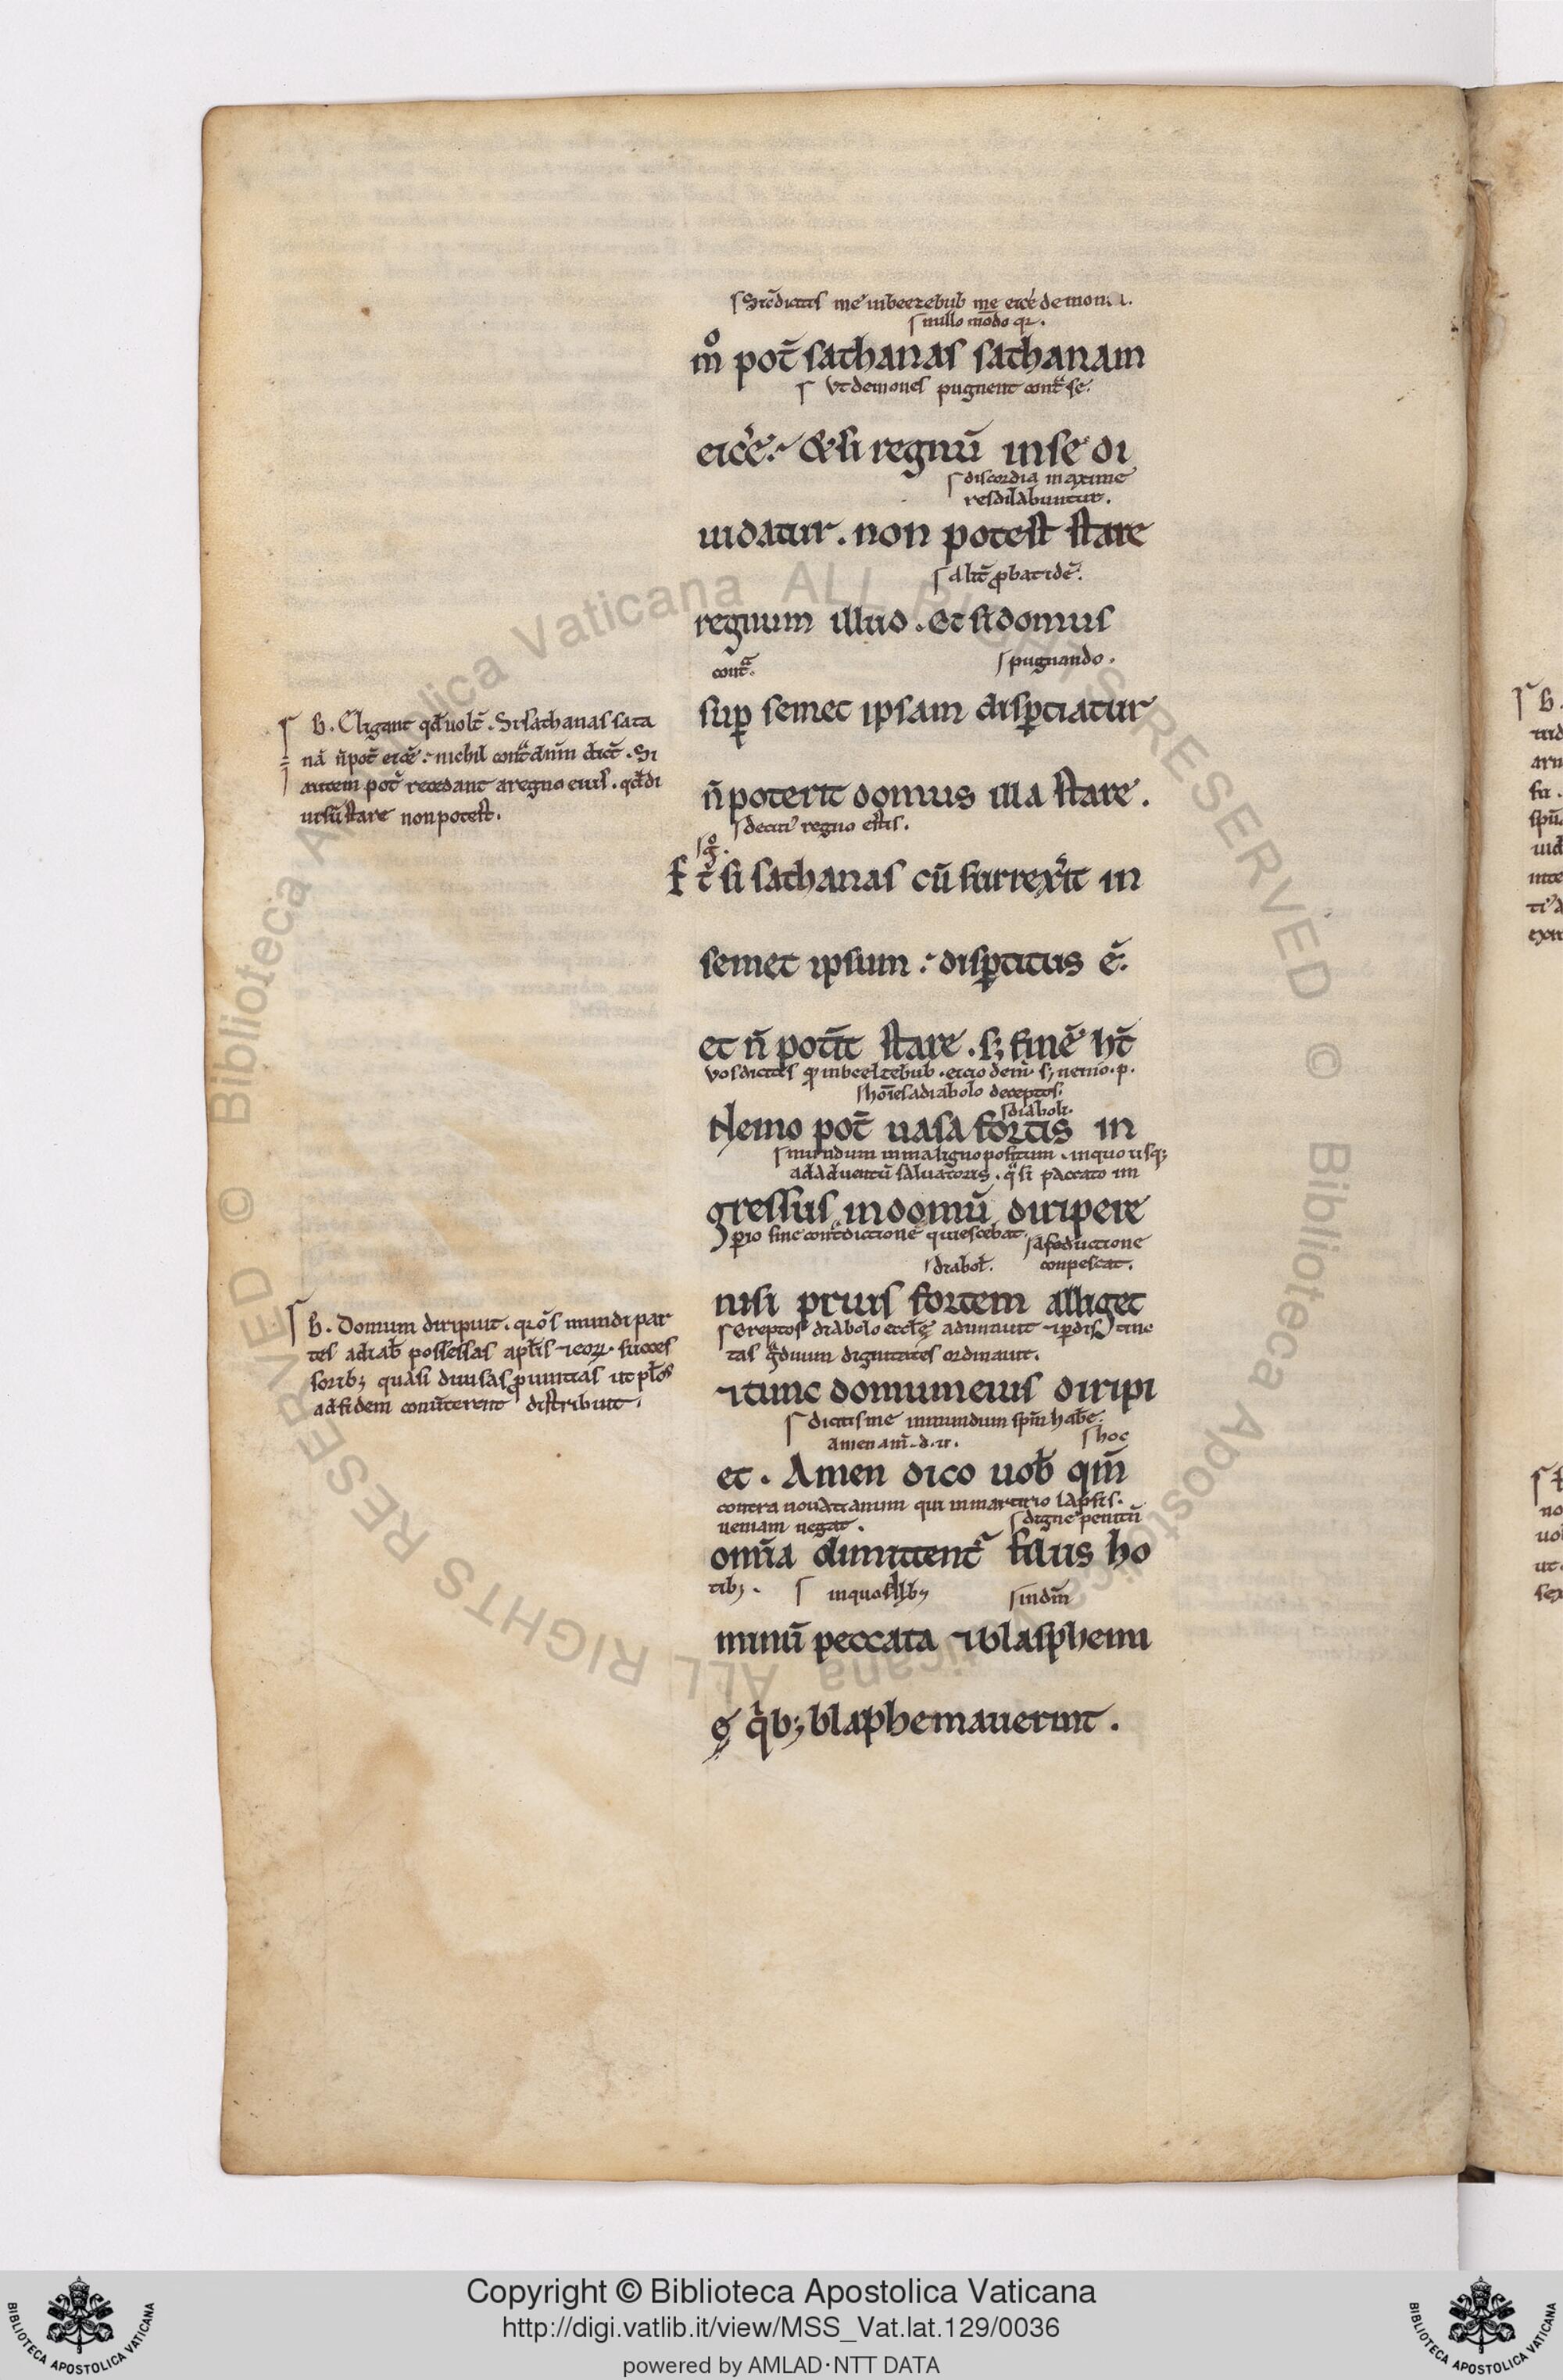 Sic̄ dicitis me inbeezebub me eice᷑ demonia.
nullo modo qr.
m̊ pot̄ sathanas sathanam
Vt demones pugnent contᷓ se.
eice᷑. & si regnū inse di
discordia maxime
res dilabuntur.
uidatur. non potest stare
alit̄ ꝓbat idē.
regnum illud. Et si domus
contᷓ. pugnando.
suꝑ semet ipsam disꝑtiatur
n̄ poterit domus illa stare.
de cuiꝰ regno estis.
g̊.
Et si sathanas cū surrex᷑it in
semet ipsum : disꝑtitus ē.
et n̄ pot̄it stare. sꝫ finē ht̄
vos dicitis ꝙ inbeelzebub. eicio dem̄. sꝫ nemo. p.
hōies a diabolo deceptos.
diaboli.
Nemo pot̄ uasa fortis in
mundum in maligno positum. inquo usqꝫ
ad aduentū saluatoris. qᷓsi paccato im
gressus indomū diripere
ꝑio sine contᷓdictione quiescebat.
a seductione
diabol̄. conpescat.
nisi prius fortem alliget
Ereptos diabolo eccl̄ę adunauit ⁊ ꝑ dis tinc
tas gᷓduum dignitates ordinauit.
⁊ tunc domum eius diripi
dicitis me inmundum sp̄m habe᷑.
amen am̄. d. u. hoc
et. Amen dico uob̄ qm̄
contra nouatianum qui in martirio lapsis.
ueniam negat. digne penitū
omīa dimittent᷑ filiis ho
tibꝫ. inquos libꝫ indm̄
minū peccata ⁊ blasphemi
ę qͥbꝫ blaphemauerint.
B. Eligant qd̄ uolt̄. Si sathanas sata
nā n̄ pot̄ eice᷑ : nichil contᷓ dnm̄ dicit̄. Si
autem pot̄ recedant a regno eius. qd̄ di
uisū stare non potest.
B. Domum diripuit. qr ōs mundi par
tes a diab̄ possessas apl̄is ⁊ eoꝝ succes
soribꝫ quasi diuisas ꝓuintias ut ppl̄os
ad fidem conūterent distribuit.
Copyright © Biblioteca Apostolica Vaticana
http://digi.vatlib.it/view/MSS_Vat.lat.129/0036
powered by AMLAD·NTT DATA
BIBLIOTECA APOSTOLICA VATICANA
BIBLIOTECA APOSTOLICA VATICANA